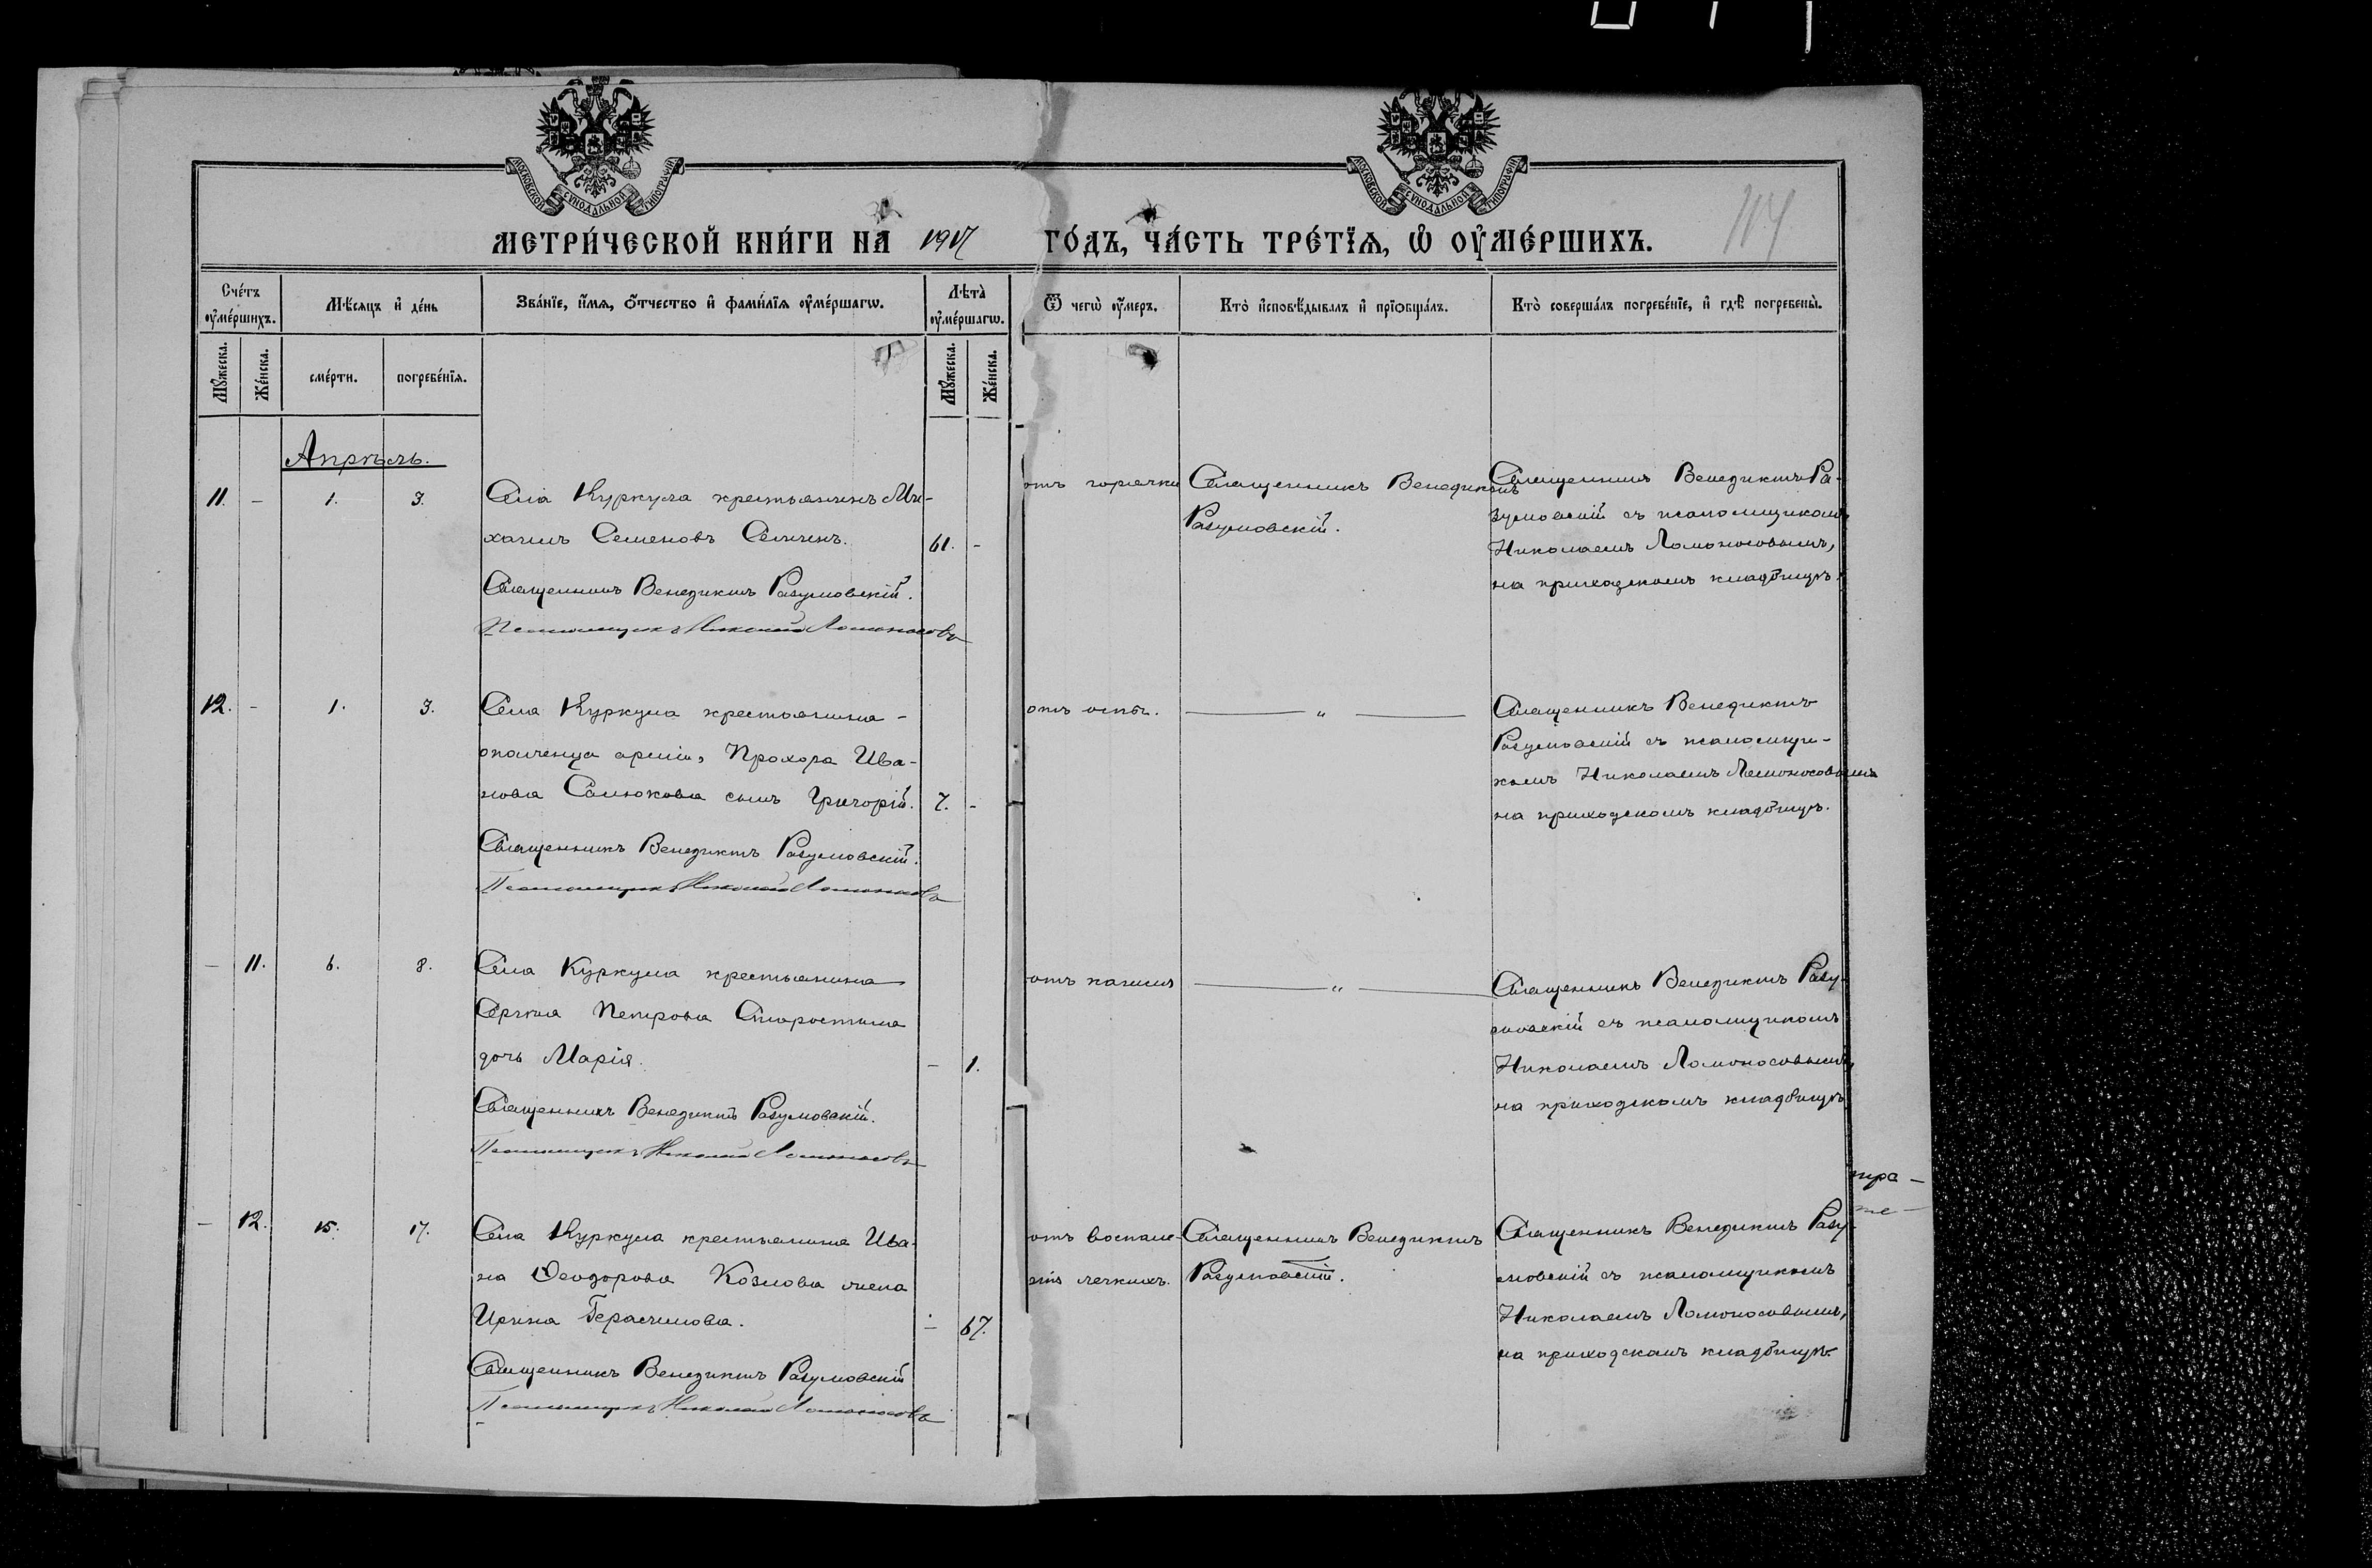 МОСКОВСКОЙ СѴНОДАЛЬНОЙ ТИПОГРАФІИ
МОСКОВСКОЙ СѴНОДАЛЬНОЙ ТИПОГРАФІИ
114
МЕТРИ́ЧЕСКОЙ КНИ́ГИ НА 1917 ГО́ДЪ, ЧА́СТЬ ТРЕ́ТЇѦ, Ѡ ОУМЕ́РШИХЪ.
Сче́тъ оумершихъ.
Мѣсяцъ и де́нь
Зва́нїе, и́мѧ, ѻ́тчество и фами́лїѧ оуме́ршагѡ.
Лѣта̀ оумершагѡ.
Ѿ чегѡ̀ оумеръ.
Кто̀ исповѣдывалъ и прїѡбща́лъ.
Кто̀ соверша́лъ погребе́нїе, и гдѣ погребены̀.
Мꙋжеска.
Же́нска.
сме́рти.
погребе́нїѧ.
Мꙋжеска.
Же́нска.
Апрѣль.
11. - 1. 3.
Села Куркула крестьянинъ Ми-
хаилъ Семеновъ
61. -
Священникъ Венедиктъ Разумовскій.
Псаломщикъ Николай Ломоносовъ
отъ горячки
Священникъ Венедиктъ
Разумовскій.
Священникъ Венедиктъ Ра-
зумовскій съ псаломщикомъ
Николаемъ Ломоносовымъ,
на приходскомъ кладбищѣ.
12. - 1. 3.
Села Куркула крестьянина -
ополченца арміи, Прохора Ива-
нова Самокова сынъ Григорій. 7. -
Священникъ Венедиктъ Разумовскій.
Псаломщикъ Николай Ломоносовъ
отъ оспы.
— „ —
Священникъ Венедиктъ
Разумовскій съ псаломщи-
комъ Николаемъ Ломоносовымъ
на приходскомъ кладбищѣ.
— 11. 6. 8.
Села Куркула крестьянина
Сергѣя Петрова Старостина
дочь Марія. — 1.
Священникъ Венедиктъ Разумовскій.
Псаломщикъ Николай Ломоносовъ
отъ кашля
— „ —
Священникъ Венедиктъ Разу-
мовскій съ псаломщикомъ
Николаемъ Ломоносовымъ,
на приходскомъ кладбищѣ
— 12. 15. 17.
Села Куркула крестьянина Ива-
на Ѳеодорова Козлова жена
Ирина Герасимова. — 67.
Священникъ Венедиктъ Разумовскій
Псаломщикъ Николай Ломоносовъ
отъ воспале-
нія легкихъ.
Священникъ Венедиктъ
Разумовскій.
Священникъ Венедиктъ Разу-
мовскій съ псаломщикомъ
Николаемъ Ломоносовымъ,
на приходскомъ кладбищѣ